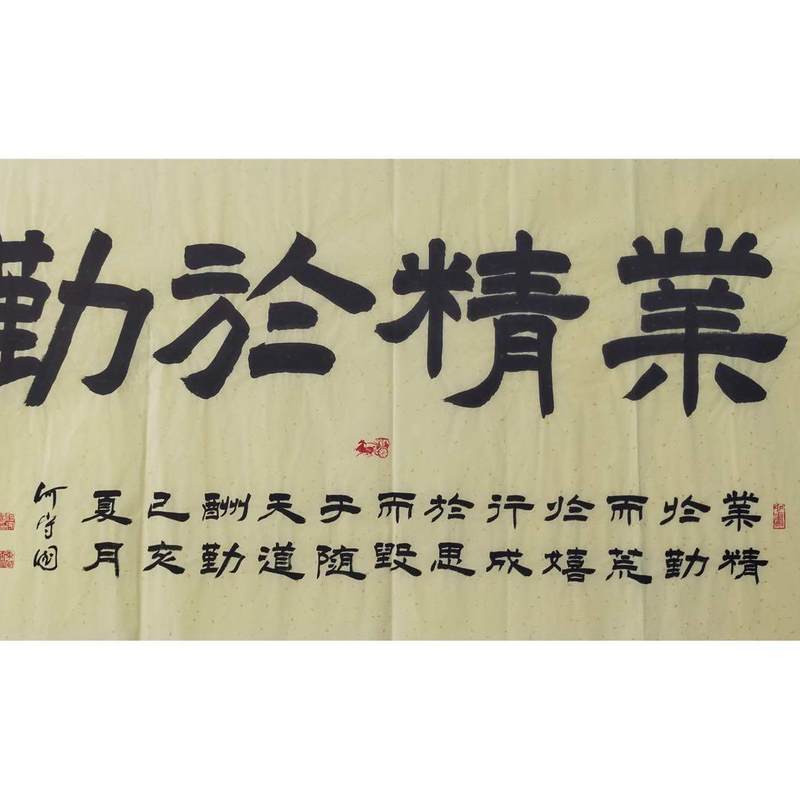 業精於勤
業精
於勤
而荒
於嬉
行成
於思
而毁
于随
天道
酬勤
己亥
夏月